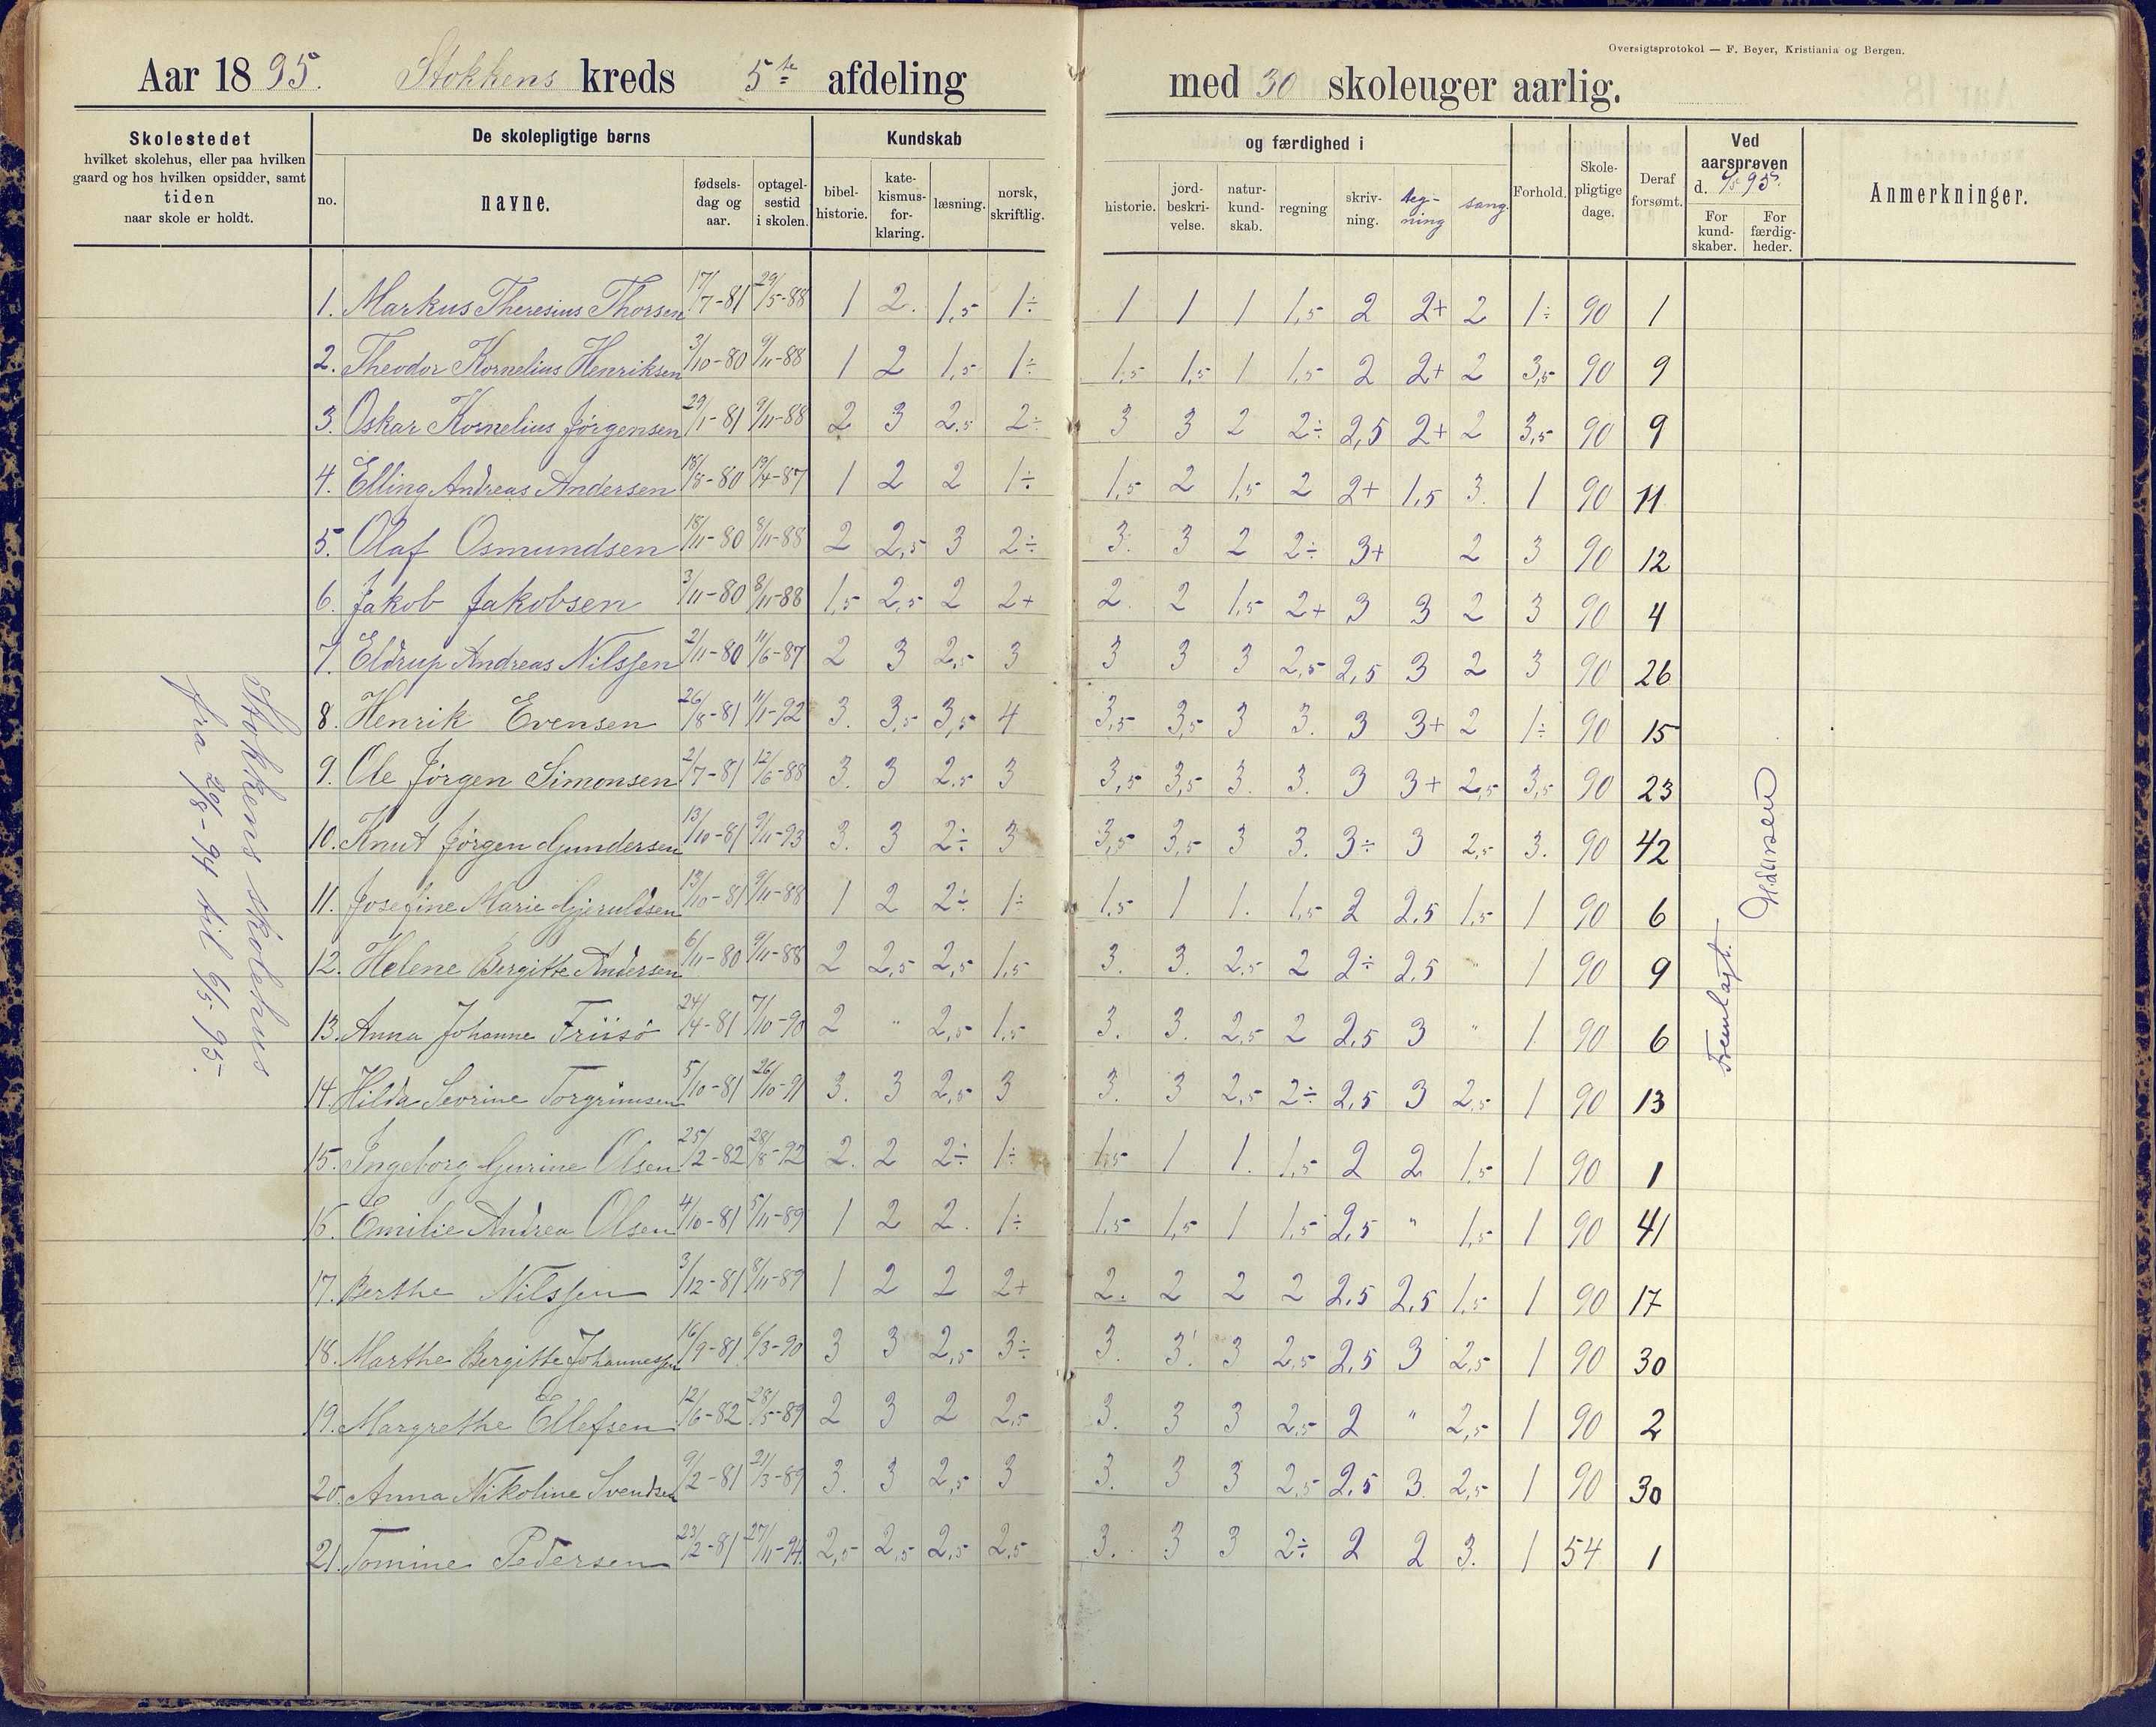 Oversigtsprotokol — F. Beyer, Kristiania og Bergen.
Aar 1895. Stokkens kreds 5te afdeling med 30 skoleuger aarlig.
Skolestedet hvilket skolehus, eller paa hvilken gaard og hos hvilken opsidder, samt tiden naar skole er holdt.
De skolepligtige børns
no. navne. fødsels-dag og aar. optagel-sestid i skolen.
Kundskab og færdighed i
bibel-historie. kate-kismus-for-klaring. læsning. norsk, skriftlig. historie. jord-beskri-velse. natur-kund-skab. regning skriv-ning. teg-ning sang. Forhold. Skole-pligtige dage. Deraf forsømt.
Ved aarsprøven d. 6/5 95.
For kund-skaber. For færdig-heder.
Anmerkninger.
Stokkens skolehus
fra 29/8-94 til 6/5 95.
1. Markus Theresius Thorsen 17/7-81 29/5-88 1 2. 1,5 1÷ 1 1 1 1,5 2 2+ 2 1÷ 90 1
2. Theodor Kornelius Henriksen 3/10-80 9/11-88 1 2 1,5 1÷ 1,5 1,5 1 1,5 2 2+ 2 3,5 90 9
3. Oskar Kornelius Jørgensen 29/1-81 9/11-88 2 3 2.5 2÷ 3 3 2 2÷ 2,5 2+ 2 3,5 90 9
4. Elling Andreas Andersen 18/8-80 19/4-87 1 2 2 1÷ 1,5 2 1,5 2 2+ 1,5 3. 1 90 11
5. Olaf Osmundsen 18/11-80 8/11-88 2 2,5 3 2÷ 3. 3 2 2÷ 3+ 2 3 90 12
6. Jakob Jakobsen 3/11-80 8/11-88 1,5 2,5 2 2+ 2. 2 1,5 2+ 3 3 2 3 90 4
7. Eldrup Andreas Nilssen 2/11-80 11/6-87 2 3 2,5 3 3 3 3 2,5 2,5 3 2 3 90 26
8. Henrik Evensen 26/8-81 11/1-92 3. 3,5 3,5 4 3,5 3,5 3 3. 3 3+ 2 1÷ 90 15
9. Ole Jørgen Simonsen 2/7-81 12/6-88 3. 3 2.5 3 3,5 3,5 3. 3. 3 3+ 2,5 3,5 90 23
10. Knut Jørgen Gundersen 13/10-81 9/11-93 3. 3 2÷ 3 3,5 3,5 3 3. 3÷ 3 2,5 3. 90 42
11. Josefine Marie Gjeruldsen 13/10-81 9/11-88 1 2 2÷ 1÷ 1,5 1 1. 1,5 2 2,5 1,5 1 90 6
12. Helene Bergitte Andersen 6/11-80 9/11-88 2 2,5 2,5 1,5 3. 3. 2,5 2 2÷ 2,5 " 1 90 9
13. Anna Johanne Friisø 24/4-81 7/10-90 2 " 2,5 1,5 3. 3. 2,5 2 2,5 3 " 1 90 6
14. Hilda Sevrine Torgrimsen 5/10-81 26/10-91 3. 3 2,5 3 3. 3 2,5 2÷ 2,5 3 2,5 1 90 13
15. Ingeborg Gurine Olsen 25/2-82 28/8-92 2. 2 2÷ 1÷ 1,5 1 1. 1,5 2 2 1,5 1 90 1
16. Emilie Andrea Olsen 4/10-81 5/11-89 1 2 2. 1÷ 1,5 1,5 1 1,5 2,5 " 1,5 1 90 41
17. Berthe Nilssen 3/12-81 8/11-89 1 2 2 2+ 2. 2 2 2 2,5 2,5 1,5 1 90 17
18. Marthe Bergitte Johannessen 16/9-81 6/3-90 3 3 2,5 3÷ 3. 3. 3 2,5 2,5 3 2,5 1 90 30
19. Margrethe Ellefsen 12/6-82 28/5-89 2 3 2 2,5 3. 3 3 2,5 2 " 2,5 1 90 2
20. Anna Nikoline Svendsen 9/2-81 21/3-89 3. 3 2,5 3 3. 3 3 2,5 2,5 3. 2,5 1 90 30
21. Tomine Pedersen 23/2-81 27/11-94. 2,5 2,5 2,5 2,5 3. 3 3 2÷ 2 2 3. 1 54 1
Fremlagt.